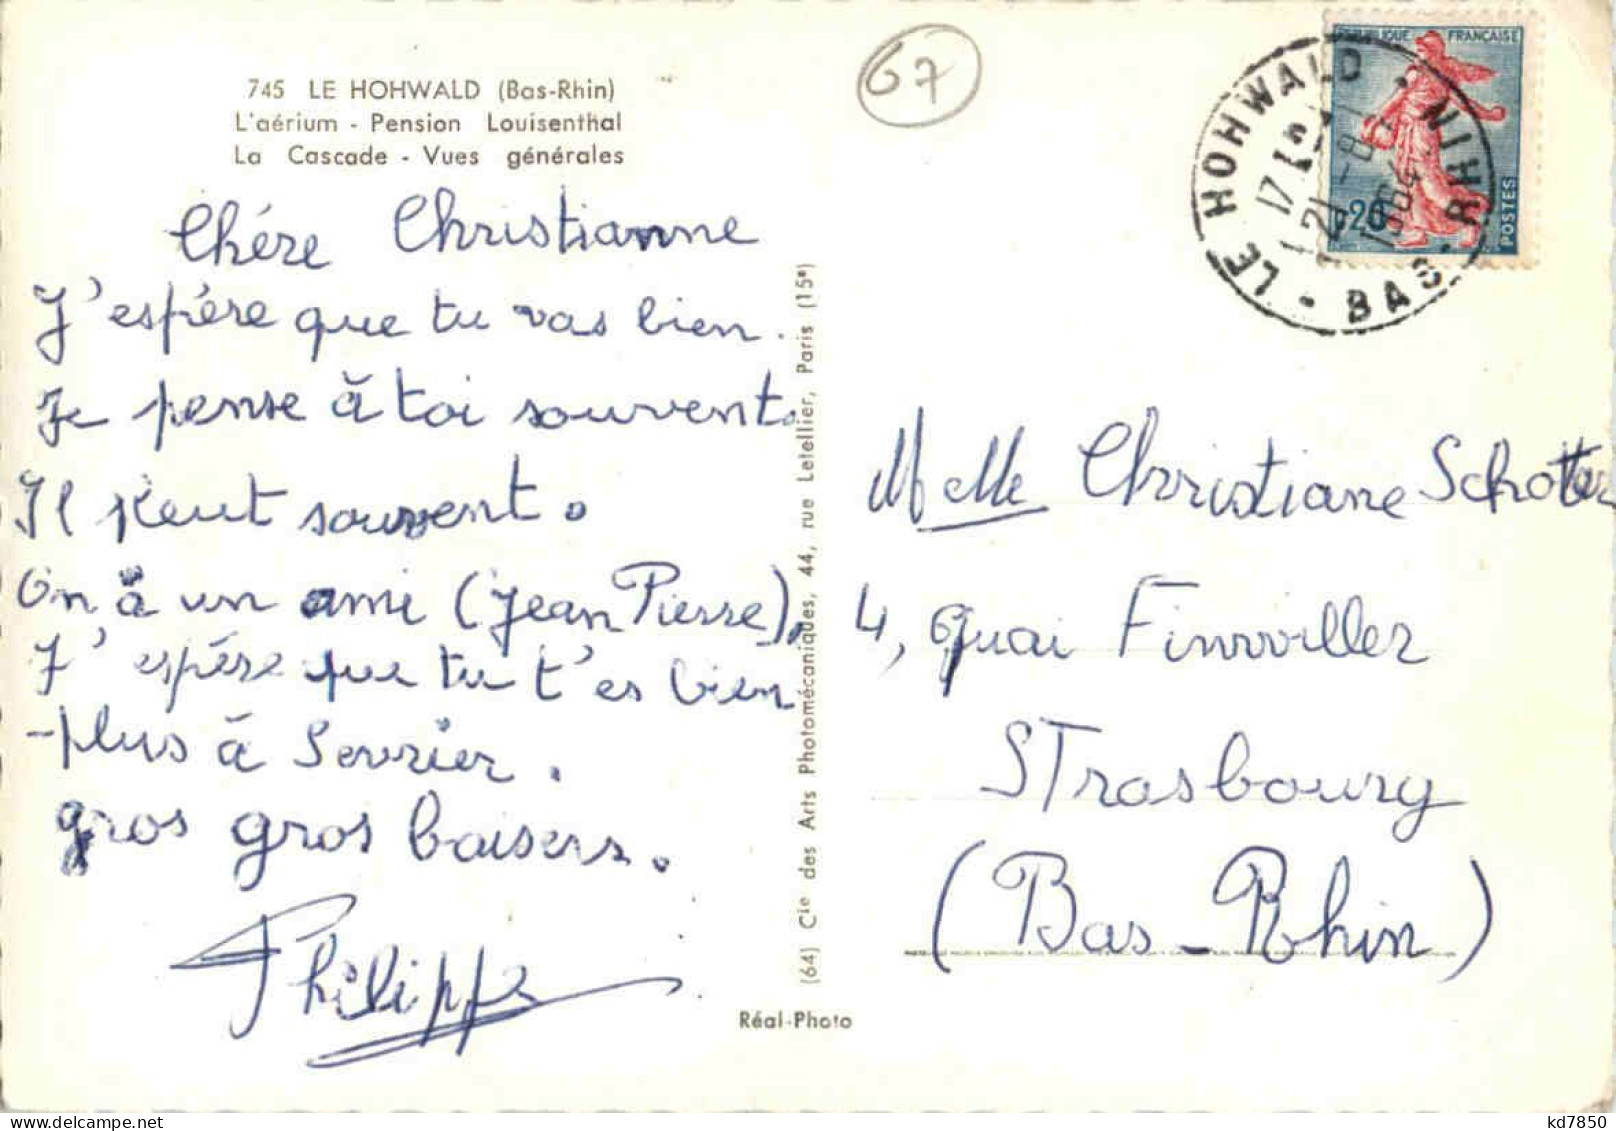 745 LE HOHWALD (Bas-Rhin)
L'aérium - Pension Louisenthal
La Cascade - Vues générales
Chére Christianne
J'espére que tu vas bien.
Je pense à toi souvent.
Il pleut souvent.
On à un ami (Jean Pierre).
J'espére que tu t'es bien
plus à Sevrier.
gros gros baisers.
Philippe
(64) Cie des Arts Photomécaniques, 44, rue Letellier, Paris (15e)
Réal-Photo
67
RÉPUBLIQUE FRANÇAISE
0,20
POSTES
LE HOHWALD • BAS-RHIN •
17 H
21 -8
1964
Melle Christiane Schotter
4, Quai Finkwiller
STrasbourg
(Bas-Rhin)
kd7850